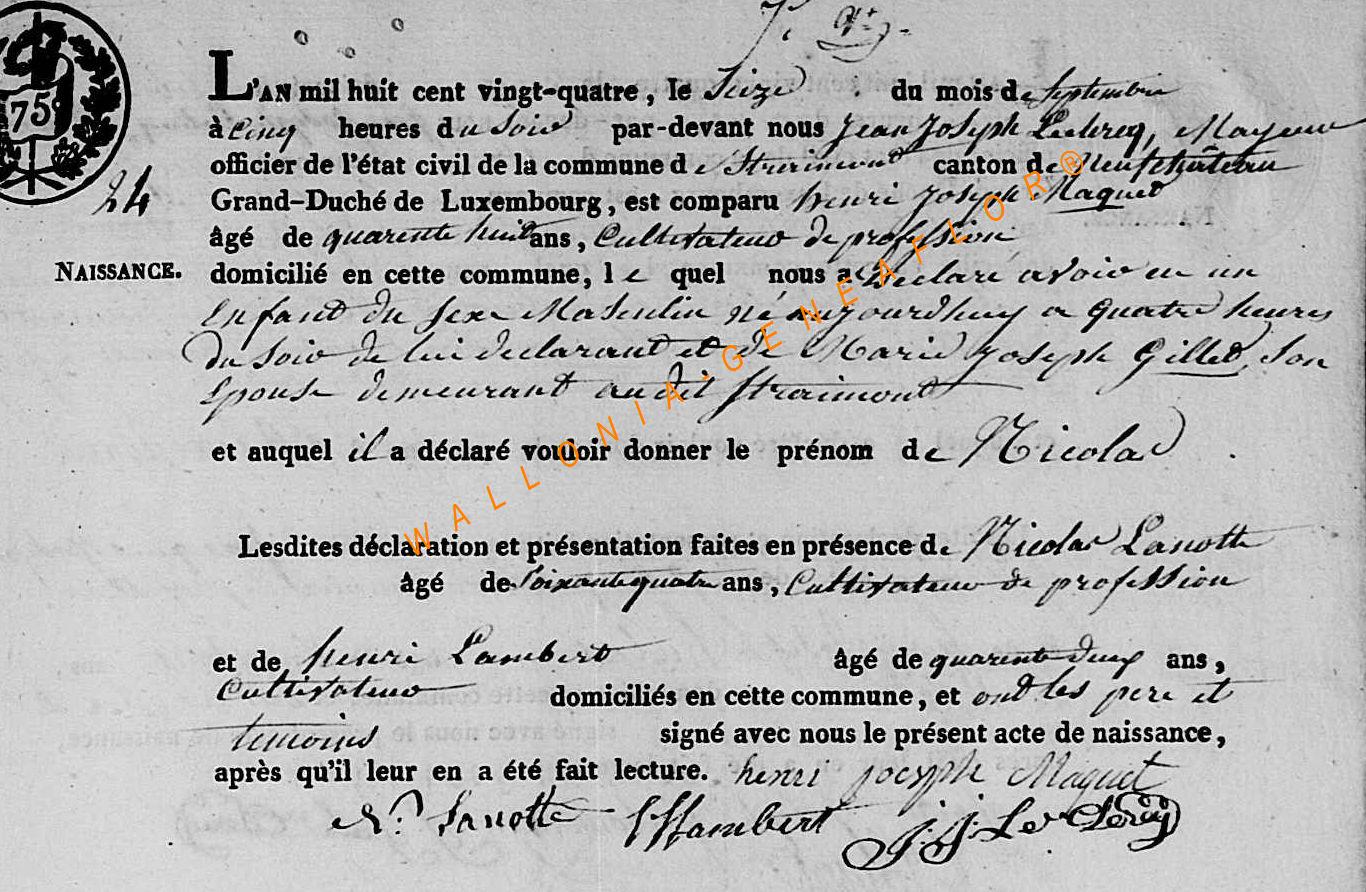 75
L'AN mil huit cent vingt-quatre, le Seize du mois de Septembre
à Cinq heures du Soir par-devant nous Jean Joseph Leclercq, Mayeur
officier de l'état civil de la commune de Straimont canton de Neufchâteau
24
Grand-Duché de Luxembourg, est comparu henri Joseph Maquet
âgé de quarente huit ans, Cultivateur de profession
NAISSANCE.
domicilié en cette commune, le quel nous a Declaré avoir eu un
Enfant du Sexe Masculin né aujourdhuy a quatre heures
du Soir de lui declarant et de Marie Joseph Gillet Son
Epouse demeurant audit Straimont
et auquel il a déclaré vouloir donner le prénom de Nicolas
Lesdites déclaration et présentation faites en présence de Nicolas Lanotte
âgé de Soixante quatre ans, Cultivateur de profession
et de henri Lambert âgé de quarente deux ans,
Cultivateur domiciliés en cette commune, et ont les pere et
temoins signé avec nous le présent acte de naissance,
après qu'il leur en a été fait lecture. henri joseph Maquet
N. Lanotte H Lambert J. J. Le Clercq
WALLONIA-GENEAFLOR®